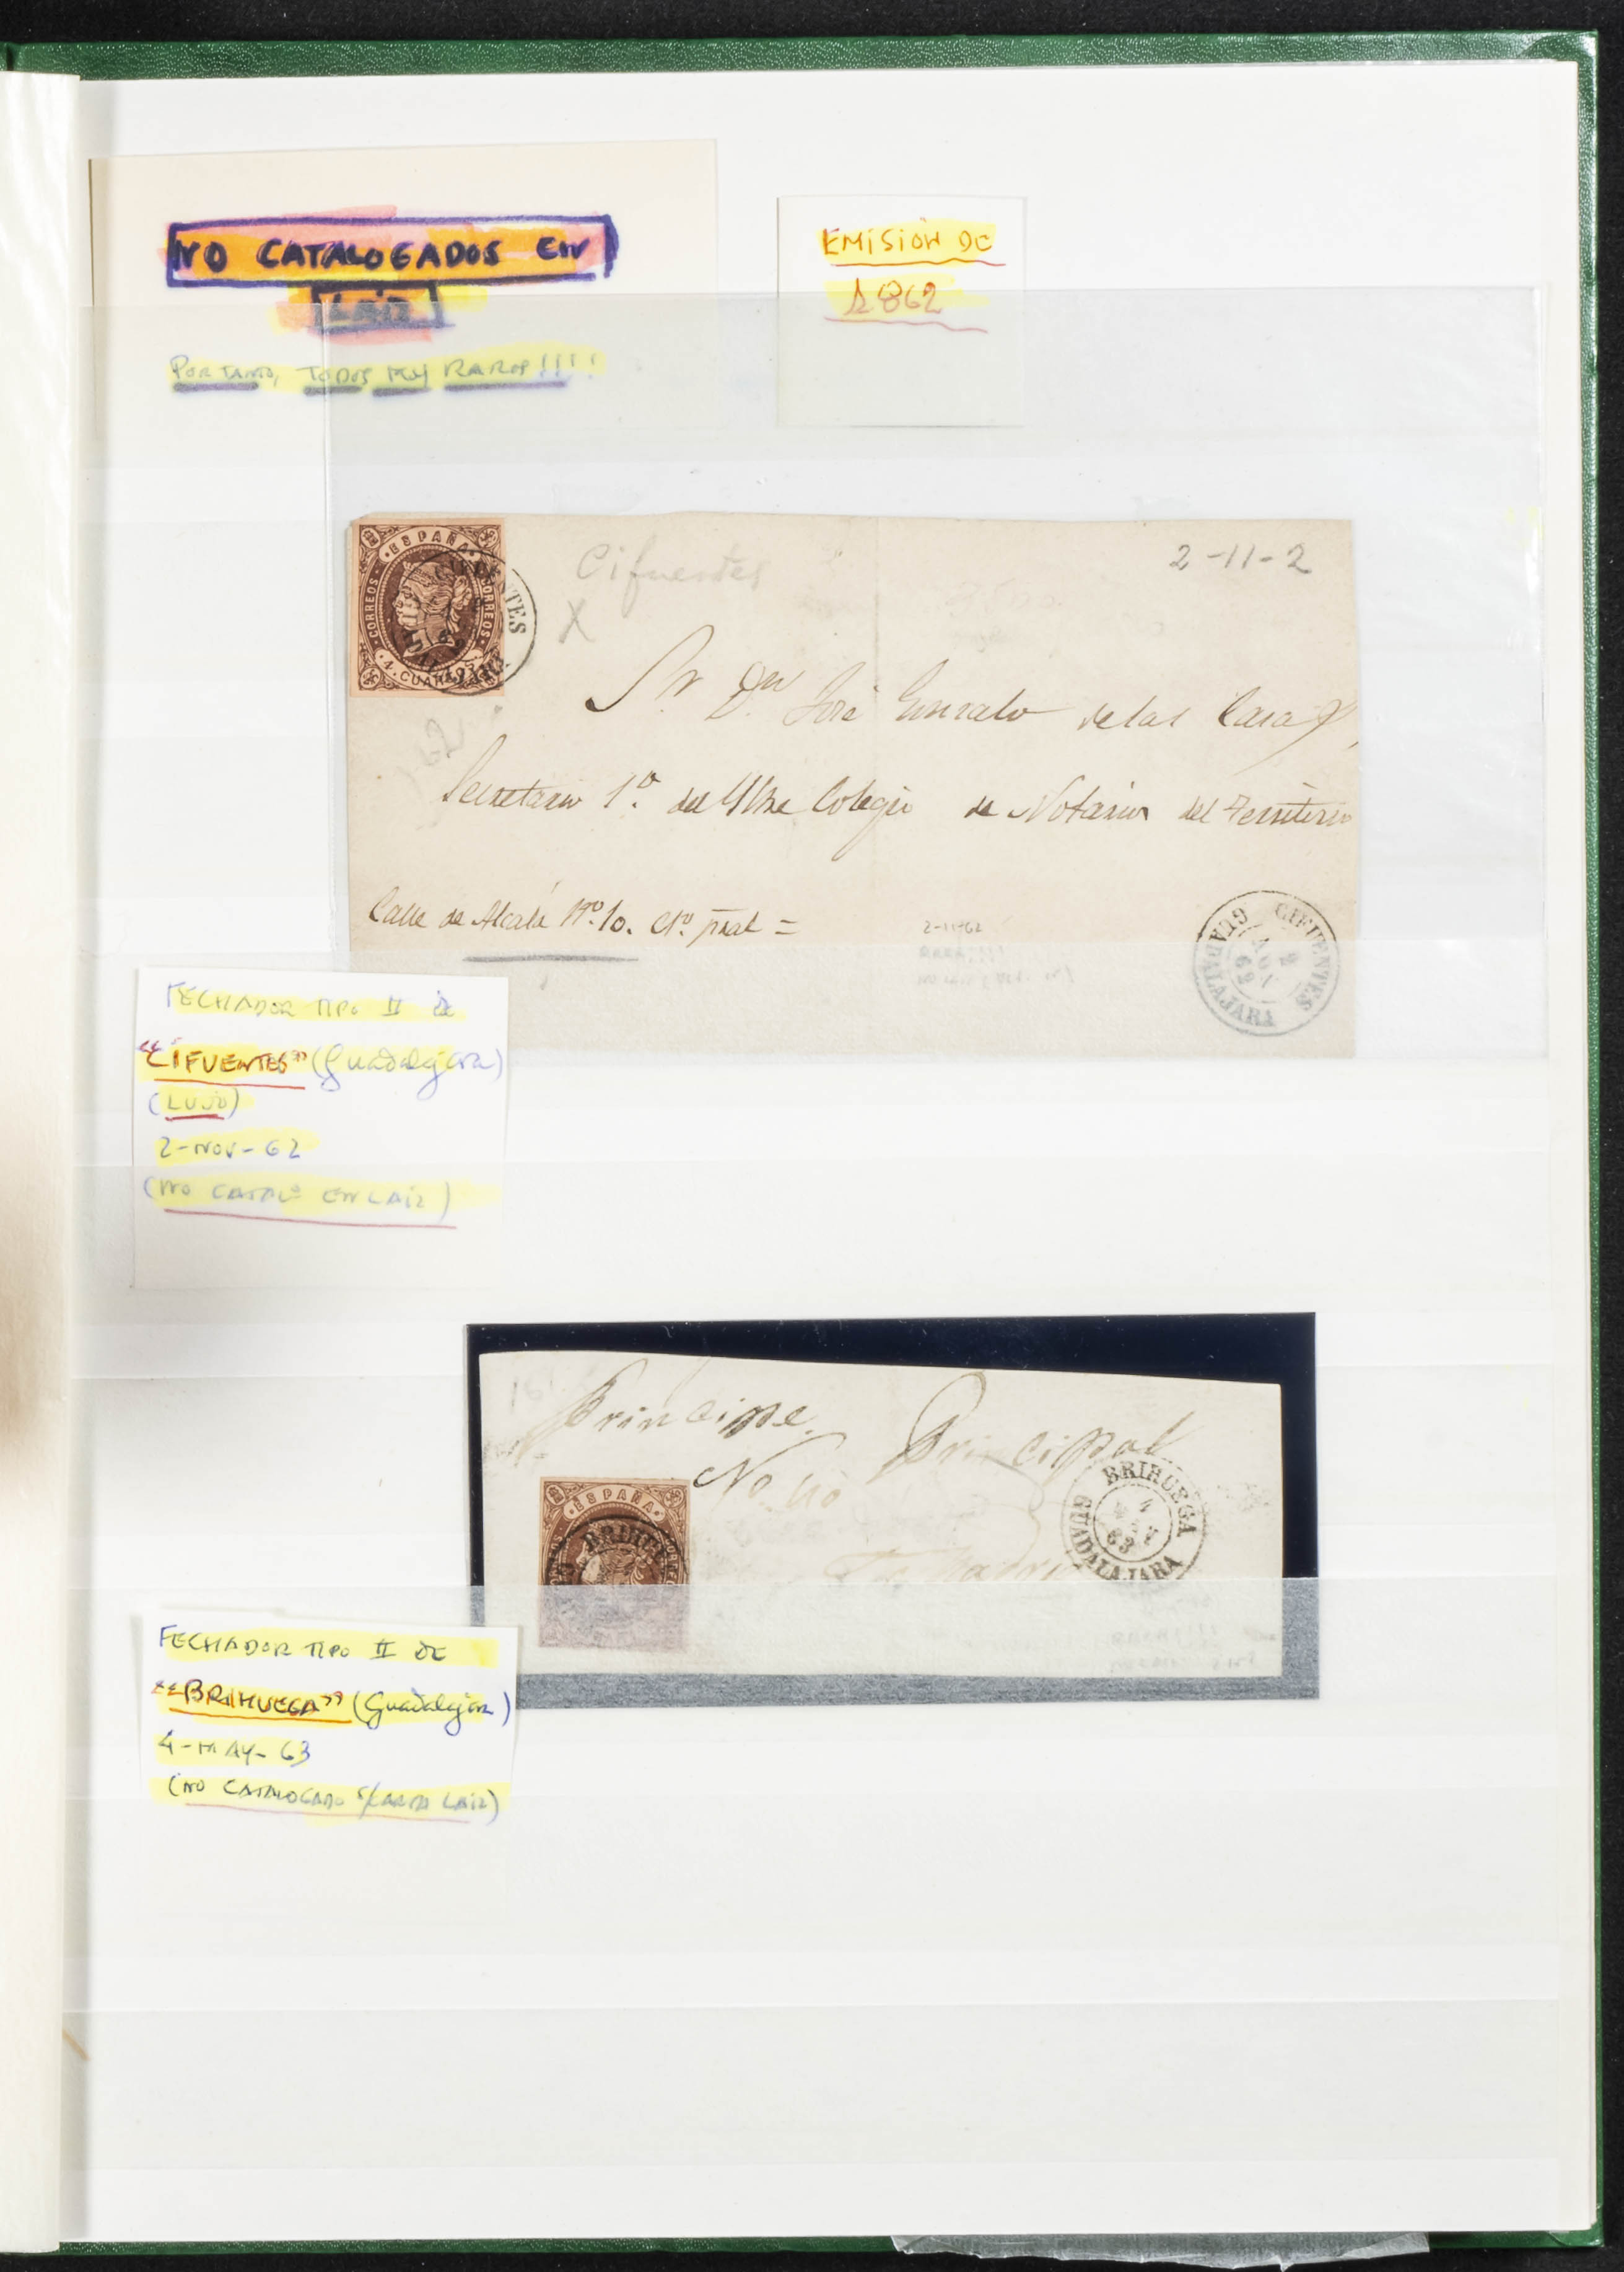 NO CATALOGADOS EN
LAIZ
POR TANTO, TODOS MUY RAROS!!!!
EMISION DE
1862
ESPAÑA
CORREOS
CORREOS
4 CUARTOS
CIFUENTES
Cifuentes
X
2-11-2
Sr. Dn José Gonzalo de las Casas,
Secretario 1º del Iltre Colegio de Notarios del Territorio
Calle de Alcalá Nº 10. Cto. pral =
2-11-62
CIFUENTES
2
NOV
62
GUADALAJARA
FECHADOR TIPO II de
"CIFUENTES" (Guadalajara)
(LUJO)
2-NOV-62
(NO CATALº EN LAIZ)
Principe Principal
No
ESPAÑA
BRIHUEGA
4
63
GUADALAJARA
FECHADOR TIPO II DE
"BRIHUEGA" (Guadalajara)
4-MAY-63
(NO CATALOGADO S/CARTA LAIZ)